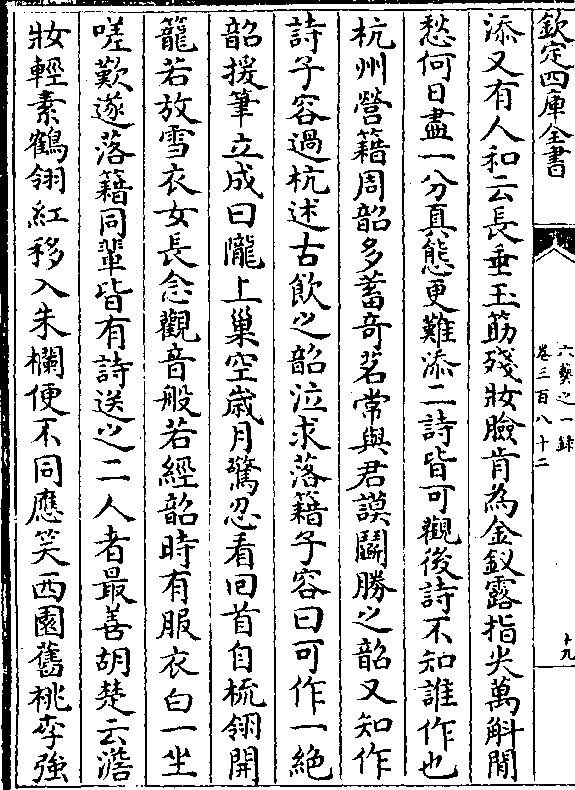 欽定四庫全書
六藝之一錄
卷三百八十二
十九
添又有人和云長垂玉筯殘妝臉肯為金釵露指尖萬斛閒
愁何日盡一分真態更難添二詩皆可觀後詩不知誰作也
杭州營籍周韶多蓄奇茗常與君謨鬬勝之韶又知作
詩子容過杭述古飲之韶泣求落籍子容曰可作一絶
韶援筆立成曰隴上巢空歲月驚忍看回首自梳翎開
籠若放雪衣女長念觀音般若經韶時有服衣白一坐
嗟歎遂落籍同輩皆有詩送之二人者最善胡楚云澹
妝輕素鶴翎紅移入朱欄便不同應笑西園舊桃李強